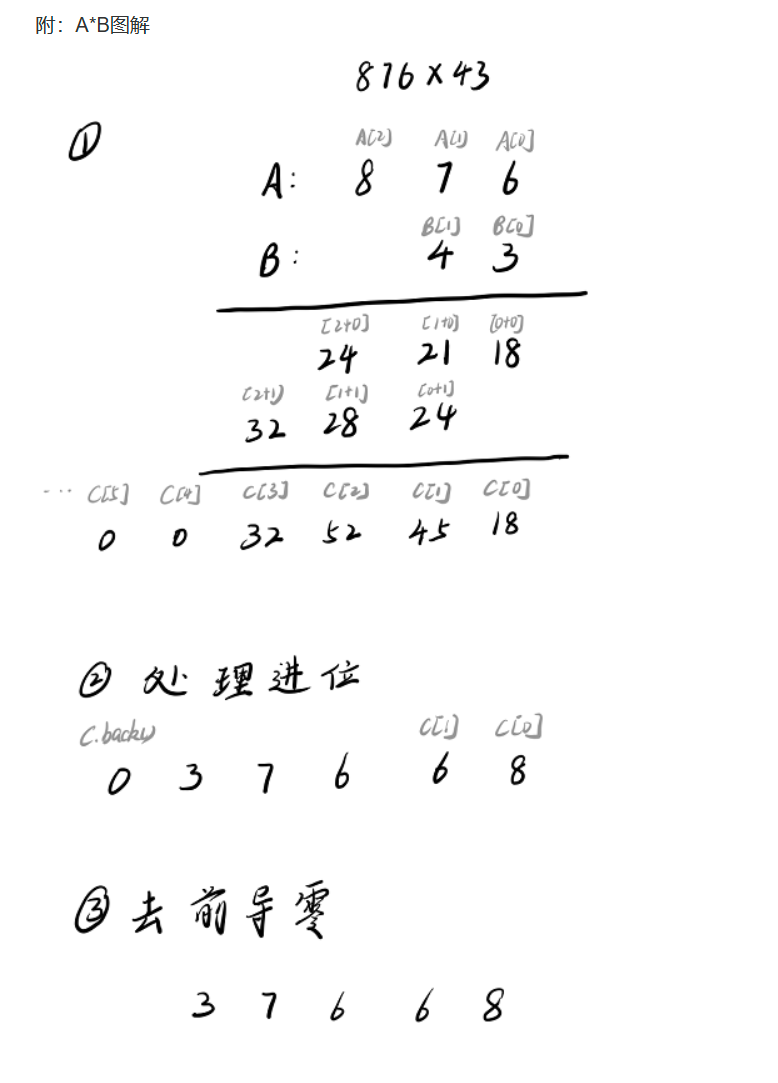 附：A*B图解
876×43
①
A[2] A[1] A[0]
A: 8 7 6
B[1] B[0]
B: 4 3
[2+0] [1+0] [0+0]
24 21 18
[2+1] [1+1] [0+1]
32 28 24
... C[5] C[4] C[3] C[2] C[1] C[0]
0 0 32 52 45 18
② 处理进位
C.back() C[1] C[0]
0 3 7 6 6 8
③ 去前导零
3 7 6 6 8